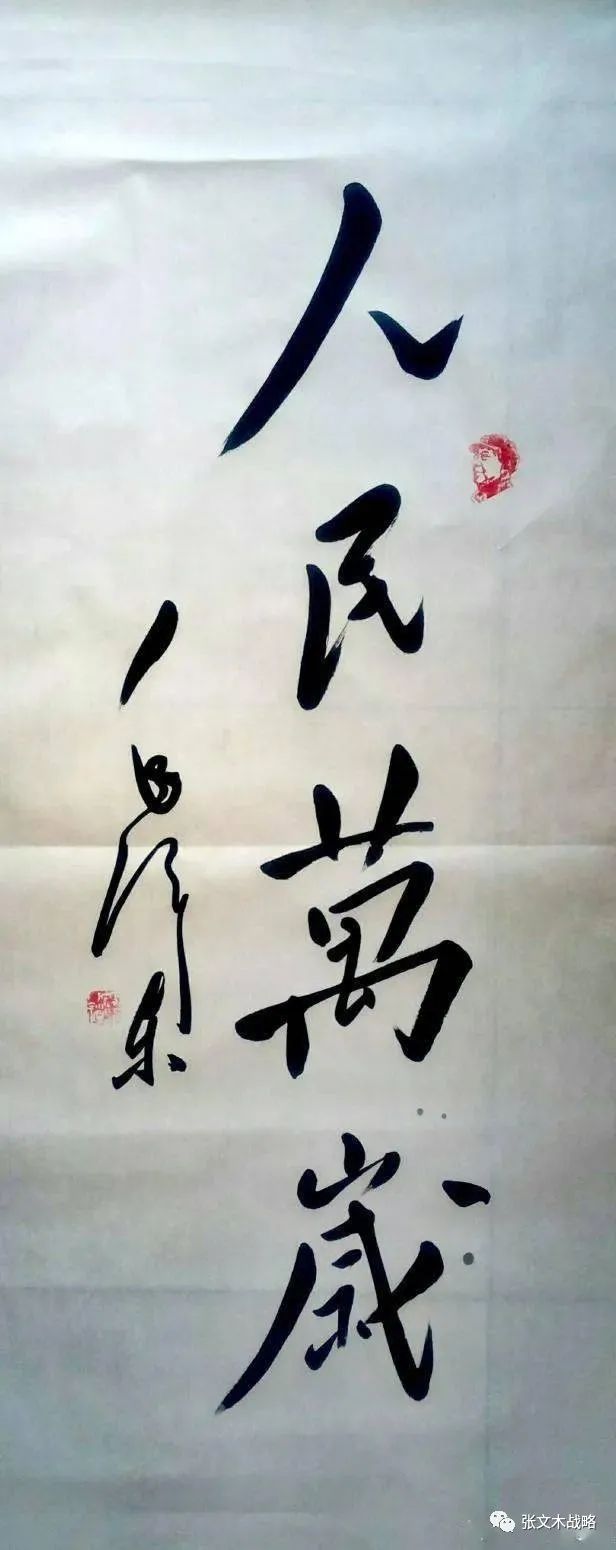 人民萬歲
毛泽东
张文木战略